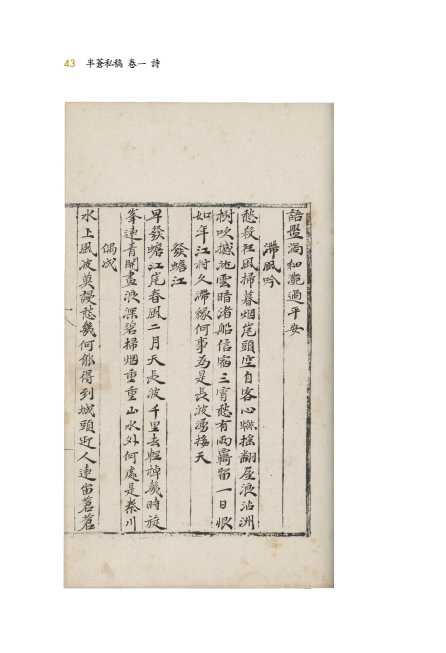 43 半蒼私稿 卷一 詩
語盤渦和灔過平安
滯風吟
愁殺狂風掃暮烟岸頭空自客心懸揺翻屋浪沾洲
樹吹撼池雲暗渚船信宿三宵愁有雨羈留一日恨
如年江村久滯緣何事為是長波湧接天
發蟾江
早發蟾江岸春風二月天長波千里去輕棹幾時旋
峯連青開畫浪深碧掃烟重重山水外何處是秦川
偶成
水上風波莫謾愁幾何能得到城頭近人連宙蒼蒼